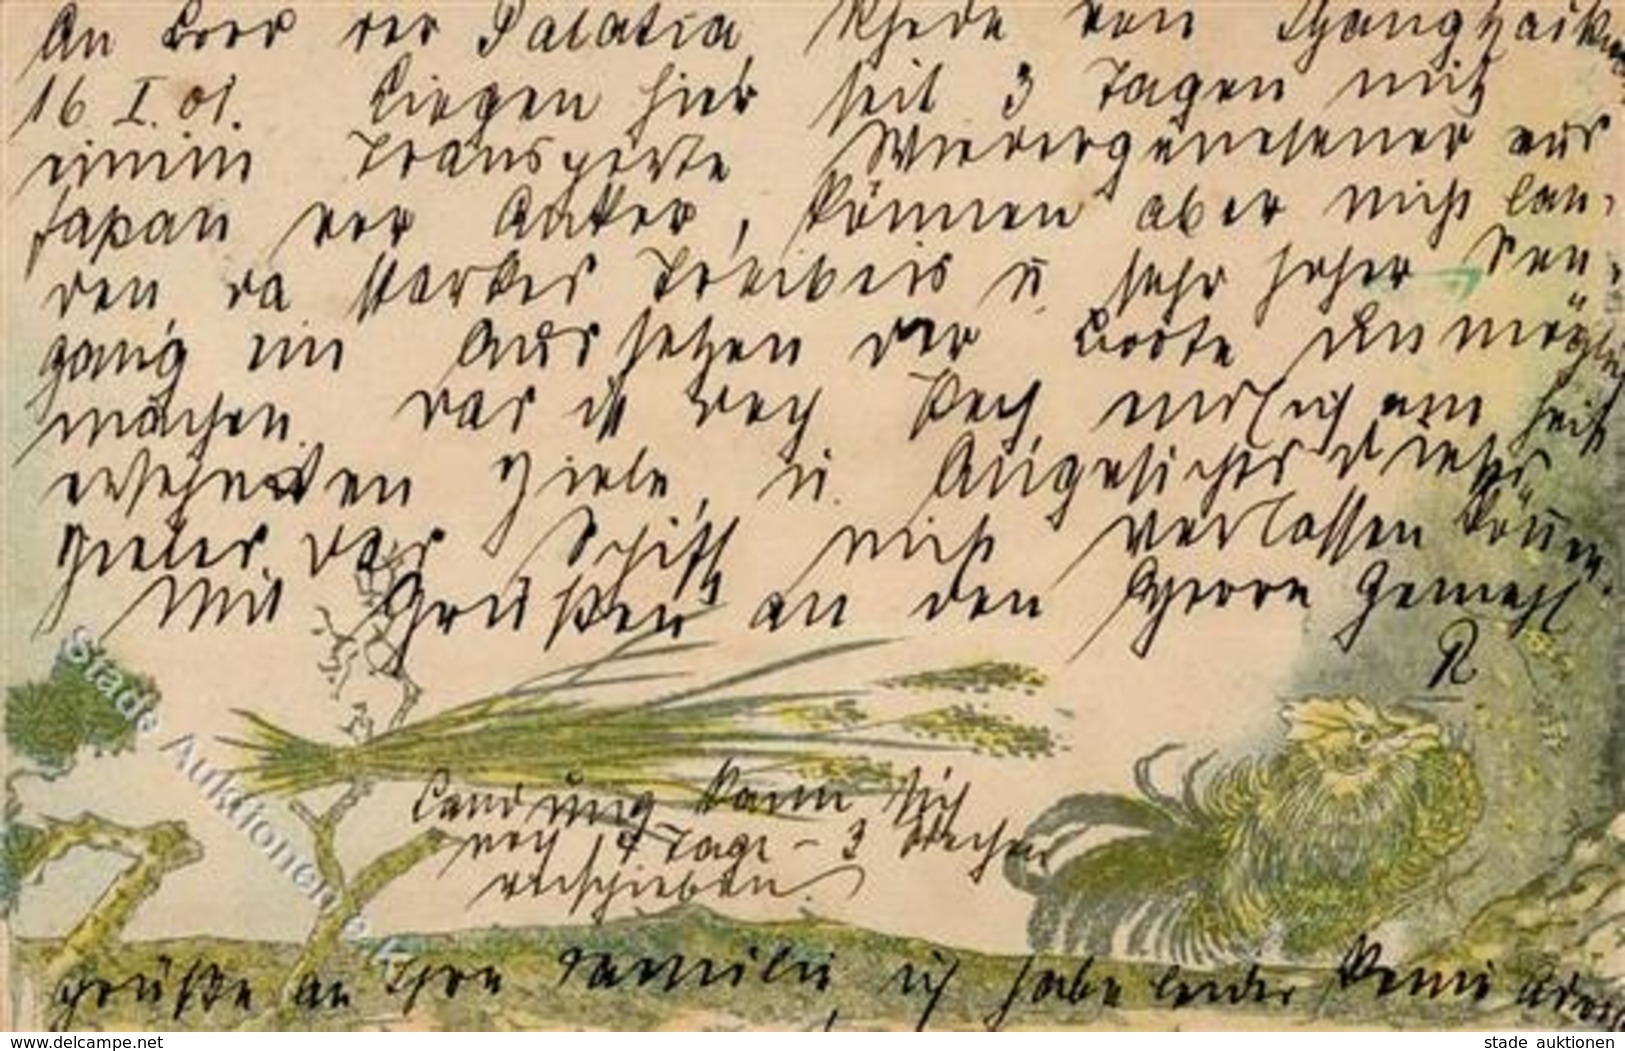 An Bord der Palatia, Rhede von Shanghaikwan
16 I. 01. Liegen hier seit 3 Tagen mit
einem Transporte Wiedergenesener aus
Japan vor Anker, können aber nicht lan-
den, da starkes Treibeis u. sehr hoher See-
gang ein Aussetzen der Boote unmöglich
machen. Das ist doch Pech, endlich am heiß
ersehnten Ziele, u. Angesichts dieses
Zieles das Schiff nicht verlassen können.
Mit Grüßen an den Herrn Gemahl
R
Landung kann sich
noch 14 Tage - 3 Wochen
verschieben.
Grüße an Ihre Familie, ich habe leider keine
Stade Auktionen
www.delcampe.net
stade_auktionen